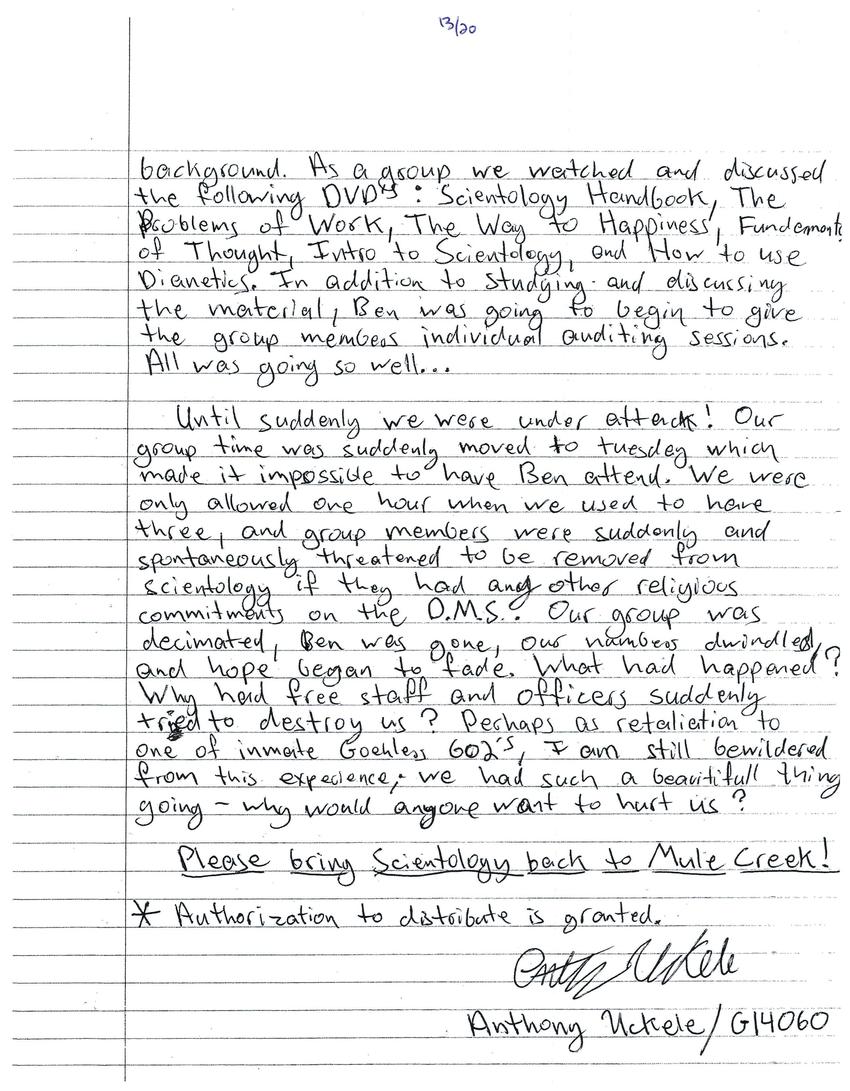 13/20
background. As a group we watched and discussed
the following DVD's: Scientology Handbook, The
Problems of Work, The Way to Happiness, Fundements
of Thought, Intro to Scientology, and How to use
Dianetics. In addition to studying and discussing
the material, Ben was going to begin to give
the group members individual auditing sessions.
All was going so well...
Until suddenly we were under attack! Our
group time was suddenly moved to tuesday which
made it impossible to have Ben attend. We were
only allowed one hour when we used to have
three, and group members were suddenly and
spontaneously threatened to be removed from
scientology if they had any other religious
commitments on the D.M.S.. Our group was
decimated, Ben was gone, our numbers dwindled,
and hope began to fade. What had happened?
Why had free staff and officers suddenly
tried to destroy us? Perhaps as retaliation to
one of inmate Goehless 602's, I am still bewildered
from this expecience, we had such a beautifull thing
going - why would anyone want to hurt us?
Please bring Scientology back to Mule Creek!
* Authorization to distribute is granted.
Anthony Uckele
Anthony Uckele/G14060